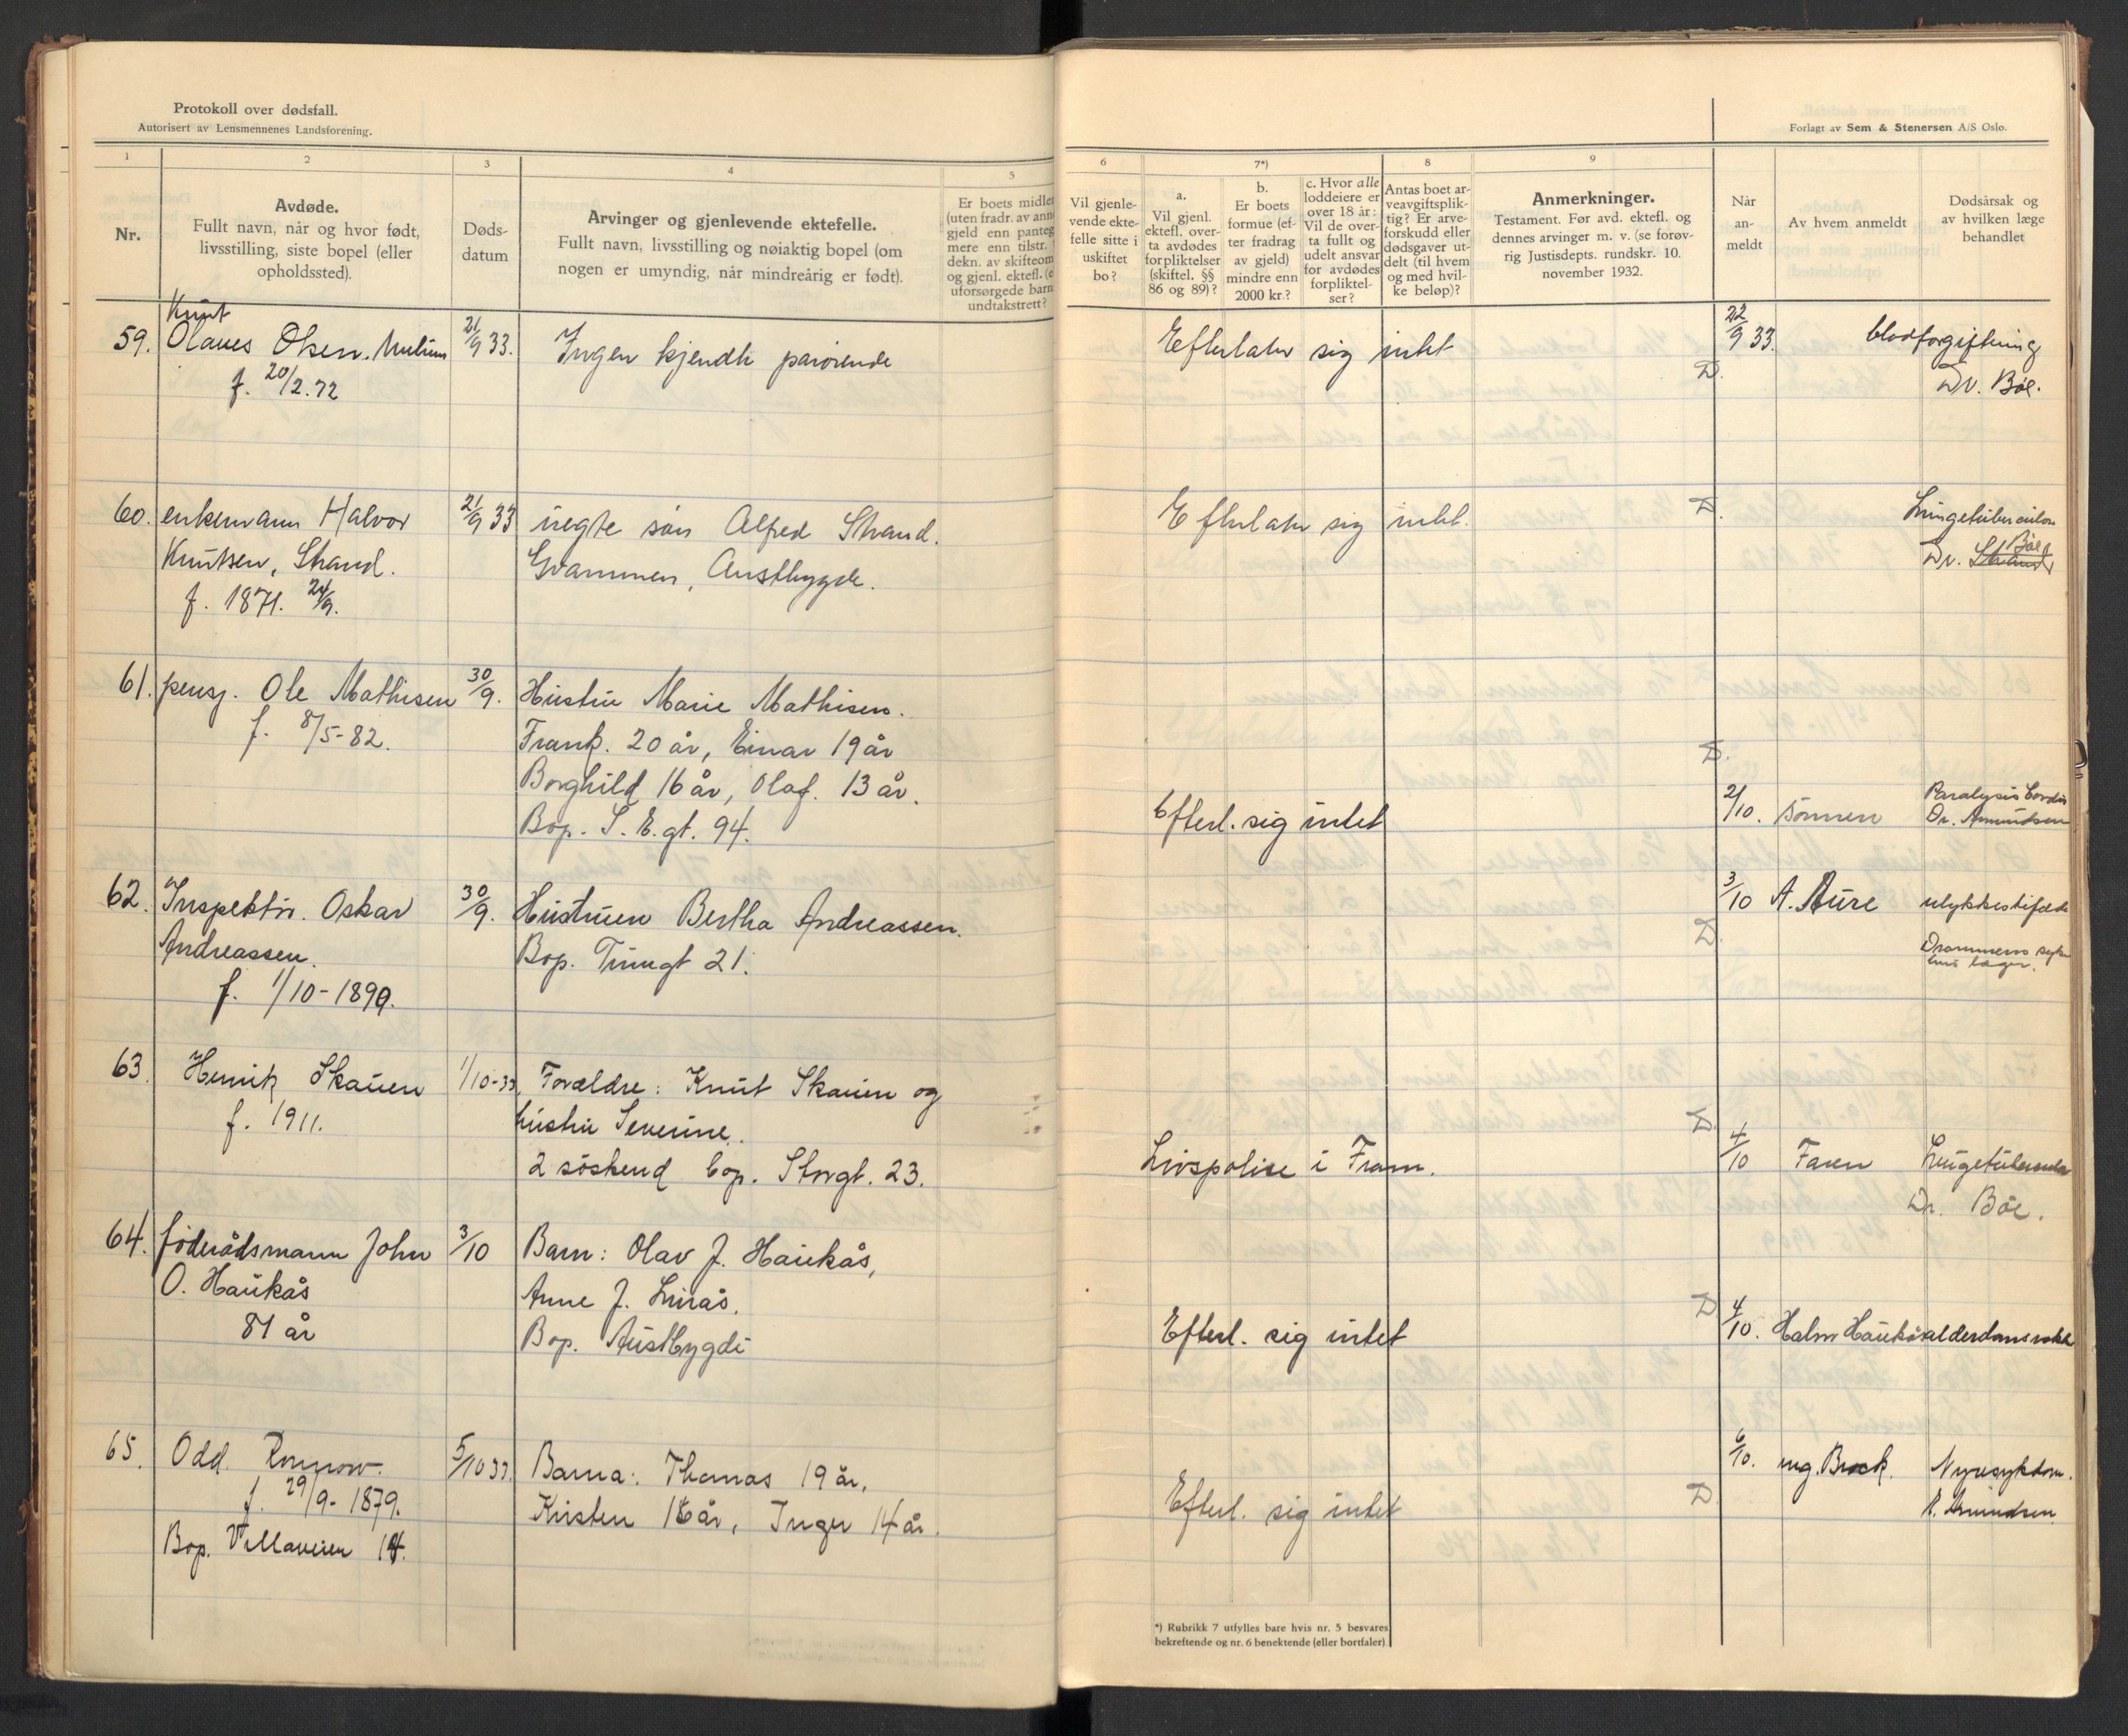 Protokoll over dødsfall.
Autorisert av Lensmennenes Landsforening.
1
2
3
4
5
Nr.
Avdøde.
Fullt navn, når og hvor født,
livsstilling, siste bopel (eller
opholdssted).
Døds-
datum
Arvinger og gjenlevende ektefelle.
Fullt navn, livsstilling og nøiaktig bopel (om
nogen er umyndig, når mindreårig er født).
Er boets midler
(uten fradr. av ann
gjeld enn panteg
mere enn tilstr.
dekn. av skifteom
og gjenl. ektefl. (e
uforsørgede barn
undtakstrett?
59.
Knut
Olaves Olsen.
f. 20/2.72
21/9 33.
Ingen kjendte parörende
60.
enkemann Halvor
Knutsen, Strand.
f. 1871. 24/9.
21/9 33
uegte sön Alfred Strand.
Gvammen, Austbygde.
61.
pensj. Ole Mathisen
f. 8/5-82.
30/9.
Hustru Marie Mathisen.
Frank. 20 år, Einar 19 år
Borghild 16 år, Olaf. 13 år.
Bop. S. E. gt. 94.
62.
Inspektör. Oskar
Andreassen.
f. 1/10-1899.
30/9.
Hustruen Bertha Andreassen.
Bop. Tinngt 21.
63.
Henrik Skauen
f. 1911.
1/10-33.
Forældre: Knut Skauen og
hustru Severine.
2 söskend bop. Storgt. 23.
64.
föderådsmann John
O. Haukås
81 år
3/10
Barn: Olav J. Haukås,
Anne J. Luraas.
Bop. Austbygdi
65.
Odd
f. 29/9-1879.
Bop. Villaveien 14.
5/10 33.
Barna: Thomas 19 år,
Kirsten 16 år, Inger 14 år.
Forlagt av Sem & Stenersen A/S Oslo.
6
7*)
8
9
Vil gjenle-
vende ekte-
felle sitte i
uskiftet
bo?
a.
Vil gjenl.
ektefl. over-
ta avdødes
forpliktelser
(skiftel. §§
86 og 89)?
b.
Er boets
formue (ef-
ter fradrag
av gjeld)
mindre enn
2000 kr.?
c. Hvor alle
loddeiere er
over 18 år:
Vil de over-
ta fullt og
udelt ansvar
for avdødes
forpliktel-
ser?
Antas boet ar-
veavgiftsplik-
tig? Er arve-
forskudd eller
dødsgaver ut-
delt (til hvem
og med hvil-
ke beløp)?
Anmerkninger.
Testament. Før avd. ektefl. og
dennes arvinger m. v. (se forøv-
rig Justisdepts. rundskr. 10.
november 1932.
Når
an-
meldt
Av hvem anmeldt
Dødsårsak og
av hvilken læge
behandlet
Efterlater sig intet
D.
22/9 33.
blodforgiftning
Dr. Böe.
Efterlater sig intet.
D.
Lungetuberculose
Böe
Dr. Strand
D.
Efterl. sig intet
2/10.
Sönnen
Paralysis Cordis
Dr. Amundsen
D
3/10
A. Aure
ulykkestilfælde
Drammens syke
hus læger.
D.
Livspolise i Fram.
4/10
Faren
Lungetuberculose
Dr. Böe.
D
Efterl. sig intet
4/10.
Halvor Haukås
alderdomssvakh
D
Efterl. sig intet
6/10.
ing. Brock.
Nyresykdom.
Amundsen
*) Rubrikk 7 utfylles bare hvis nr. 5 besvares
bekreftende og nr. 6 benektende (eller bortfaler)